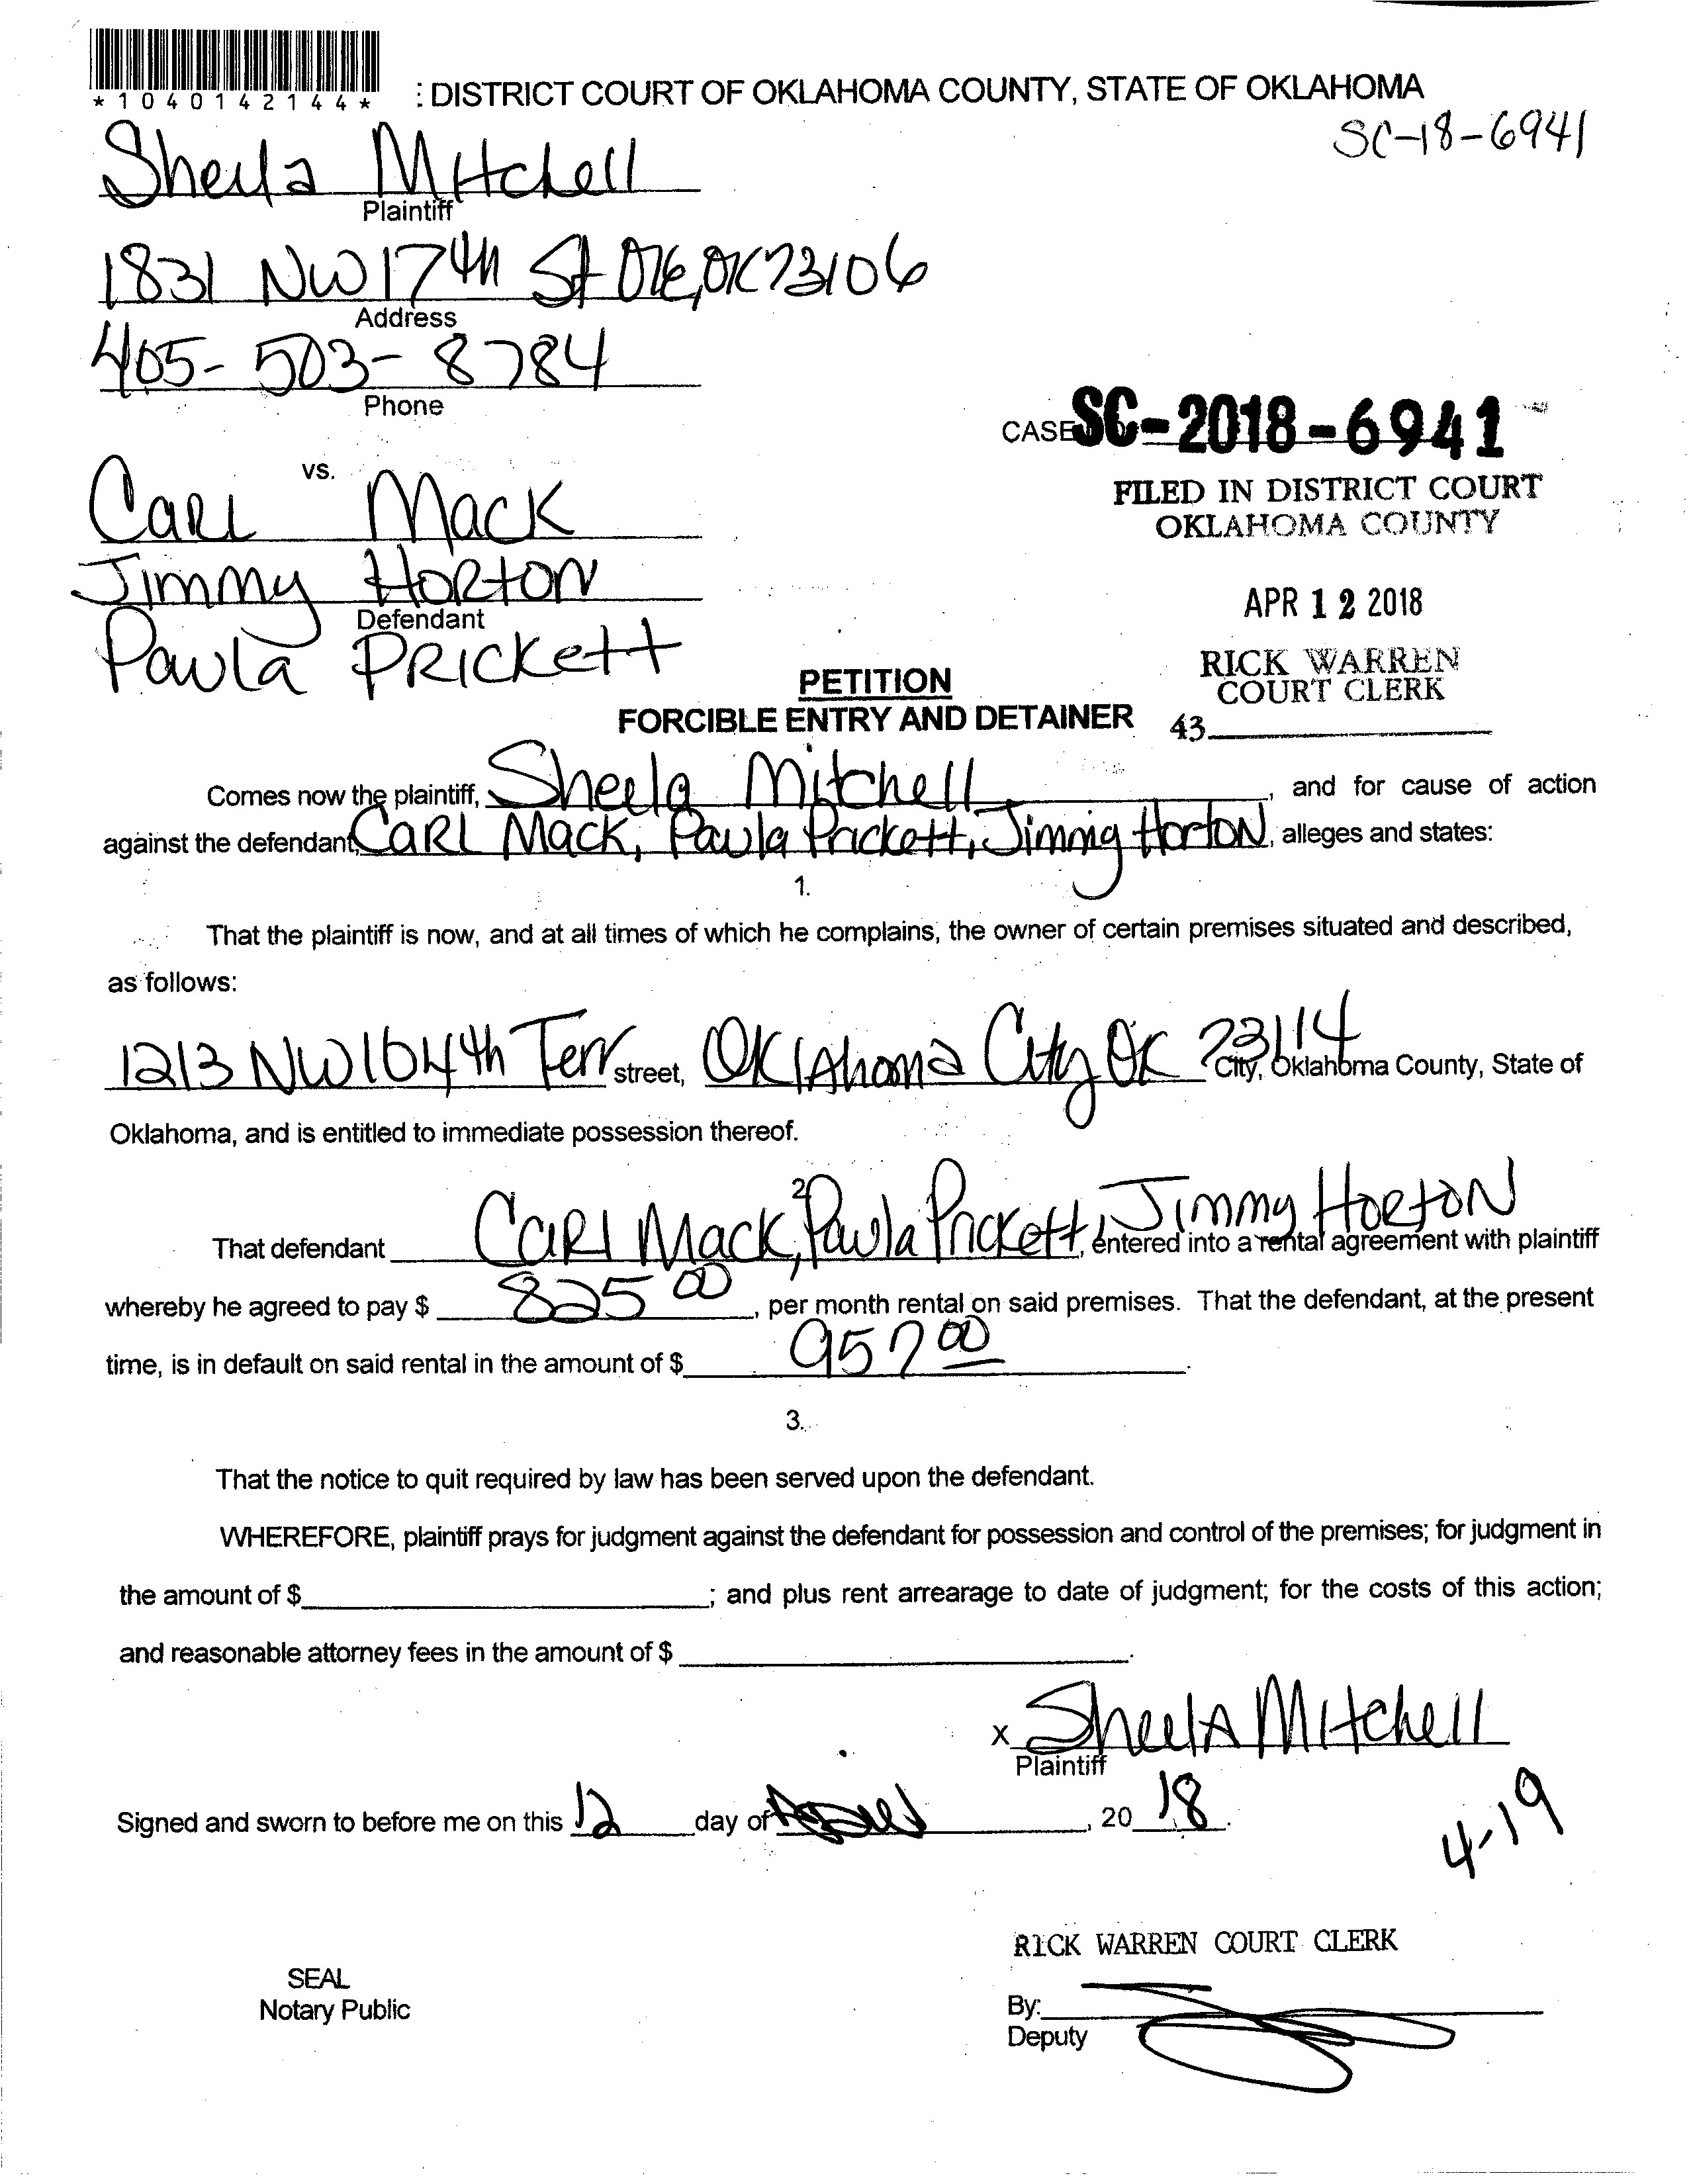 *1040142144*
: DISTRICT COURT OF OKLAHOMA COUNTY, STATE OF OKLAHOMA
SC-18-6941
Sheila Mitchell
Plaintiff
1831 NW 17th St OKC, OK 73106
Address
405-503-8784
Phone
CASE SC-2018-6941
FILED IN DISTRICT COURT
OKLAHOMA COUNTY
APR 12 2018
RICK WARREN
COURT CLERK
43
vs.
Carl Mack
Jimmy Horton
Defendant
Paula Prickett
PETITION
FORCIBLE ENTRY AND DETAINER
Comes now the plaintiff, Sheela Mitchell, and for cause of action
against the defendant, Carl Mack, Paula Prickett, Jimmy Horton, alleges and states:
1.
That the plaintiff is now, and at all times of which he complains, the owner of certain premises situated and described,
as follows:
1213 NW 104th Terr street, Oklahoma City OK 73114 City, Oklahoma County, State of
Oklahoma, and is entitled to immediate possession thereof.
2
That defendant Carl Mack, Paula Prickett, Jimmy Horton, entered into a rental agreement with plaintiff
whereby he agreed to pay $ 825 00, per month rental on said premises. That the defendant, at the present
time, is in default on said rental in the amount of $ 957 00.
3.
That the notice to quit required by law has been served upon the defendant.
WHEREFORE, plaintiff prays for judgment against the defendant for possession and control of the premises; for judgment in
the amount of $ ; and plus rent arrearage to date of judgment; for the costs of this action;
and reasonable attorney fees in the amount of $ .
x Sheela Mitchell
Plaintiff
Signed and sworn to before me on this 12 day of , 20 18.
4-19
RICK WARREN COURT CLERK
SEAL
Notary Public
By:
Deputy